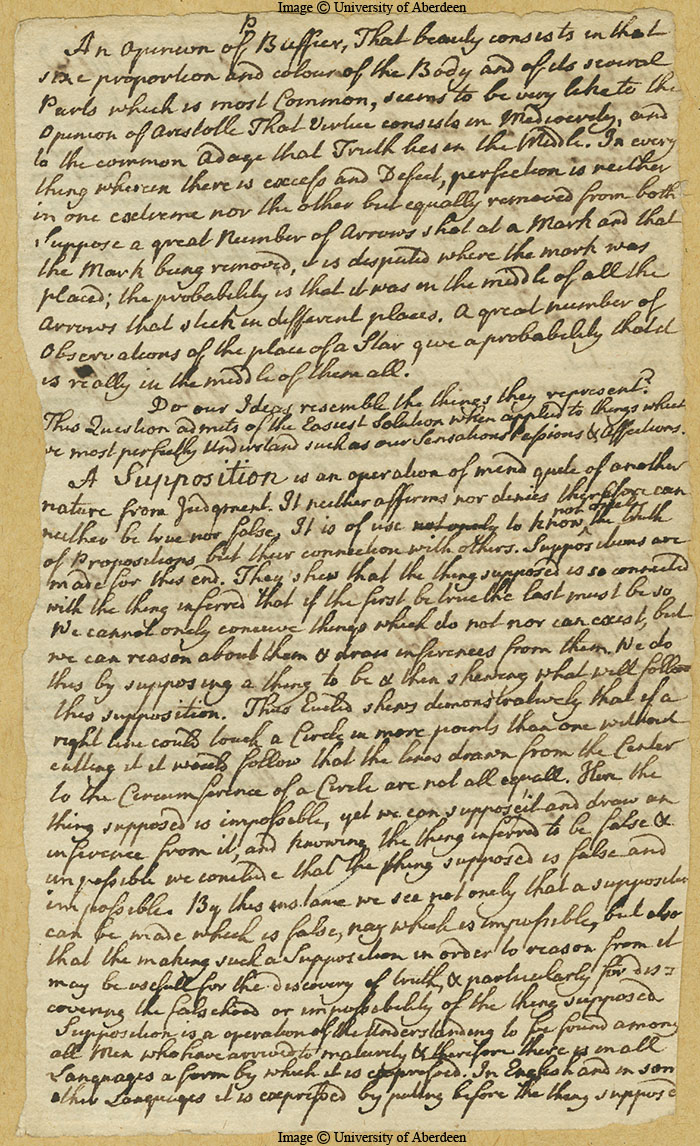 Image © University of Aberdeen
An Opinion of P Buffier, That beauty consists in that
size proportion and colour of the Body and of its several
Parts which is most Common, seems to be very like to the
Opinion of Aristotle That Virtue consists in Mediocrity, and
to the common Adage that Truth lies in the Middle. In every
thing wherein there is excess and Defect, perfection is neither
in one extreme nor the other but equally removed from both
Suppose a great Number of Arrows shot at a Mark and that
the Mark being removed, it is disputed where the mark was
placed; the probability is that it was in the middle of all the
Arrows that stick in different places. A great number of
Observations of the place of a Star give a probability that it
is really in the middle of them all.
Do our Ideas resemble the things they represent?
This Question admits of the Easiest Solution when applied to things which
we most perfectly Understand such as our Sensations Passions & Affections.
A Supposition is an operation of mind quite of another
nature from Judgment. It neither affirms nor denies therefore can
neither be true nor false, It is of use not onely to know the truth
of Propositions but their connection with others. Suppositions are
made for this end. They shew that the thing supposed is so connected
with the thing inferred that if the first be true the last must be so
We cannot onely conceive things which do not nor can exist, but
we can reason about them & draw inferences from them. We do
this by supposing a thing to be & then shewing what will follow
this supposition. Thus Euclid shews demonstratively that if a
right line could touch a Circle in more points than one without
cutting it it would follow that the lines drawn from the Center
to the Circumference of a Circle are not all equall. Here the
thing supposed is impossible, yet we can suppose it and draw an
inference from it, and knowing the thing inferred to be false &
impossible we conclude that the thing supposed is false and
impossible. By this instance we see not onely that a supposition
can be made which is false, nay which is impossible, but also
that the making such a Supposition in order to reason from it
may be usefull for the discovery of truth, & particularly for dis=
covering the falsehood or impossibility of the thing supposed
Supposition is a operation of the Understanding to be found among
all Men who have arrived to maturity & therefore there is in all
Languages a form by which it is expressed. In English and in som
other Languages it is expressed by puting before the thing supposed
Image © University of Aberdeen